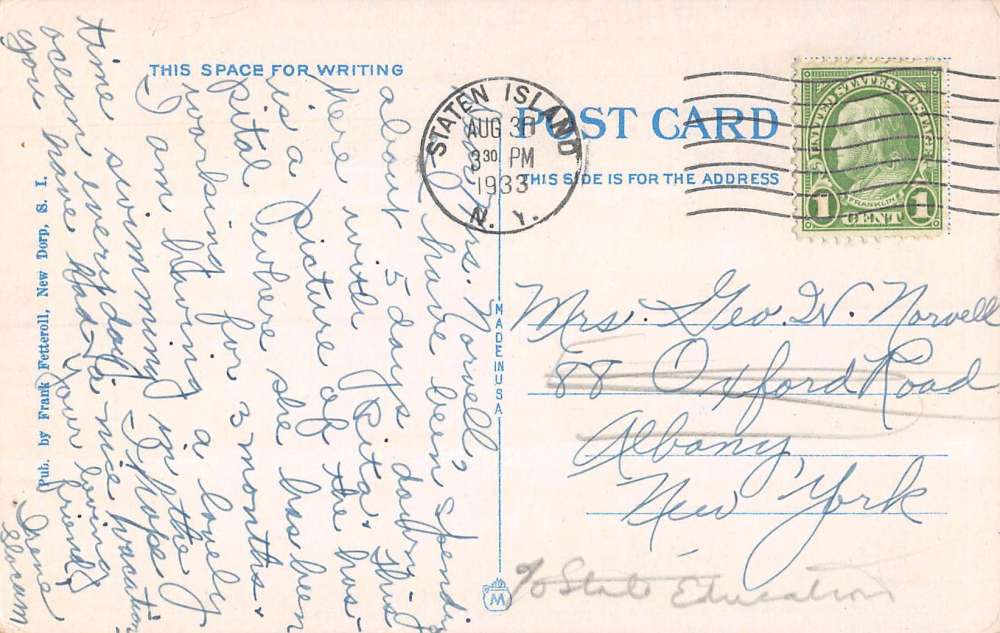 THIS SPACE FOR WRITING
POST CARD
THIS SIDE IS FOR THE ADDRESS
STATEN ISLAND
AUG 30
3 30 PM
1933
N. Y.
UNITED STATES POSTAGE
FRANKLIN
1 CENT 1
Mrs. Norvell,
I have been spending
about 5 days down
here with Rita. This
is a picture of the hos-
pital where she has been
working for 3 months.
I am having a lovely
time swimming in the
ocean every day. I hope
you have had a nice vacation
Your loving
friend,
Irene
Slocum
Mrs. Geo. W. Norvell
88 Oxford Road
Albany
New York
c/o State Education
MADE IN USA
Pub. by Frank Fetteroll, New Dorp, S. I.
M